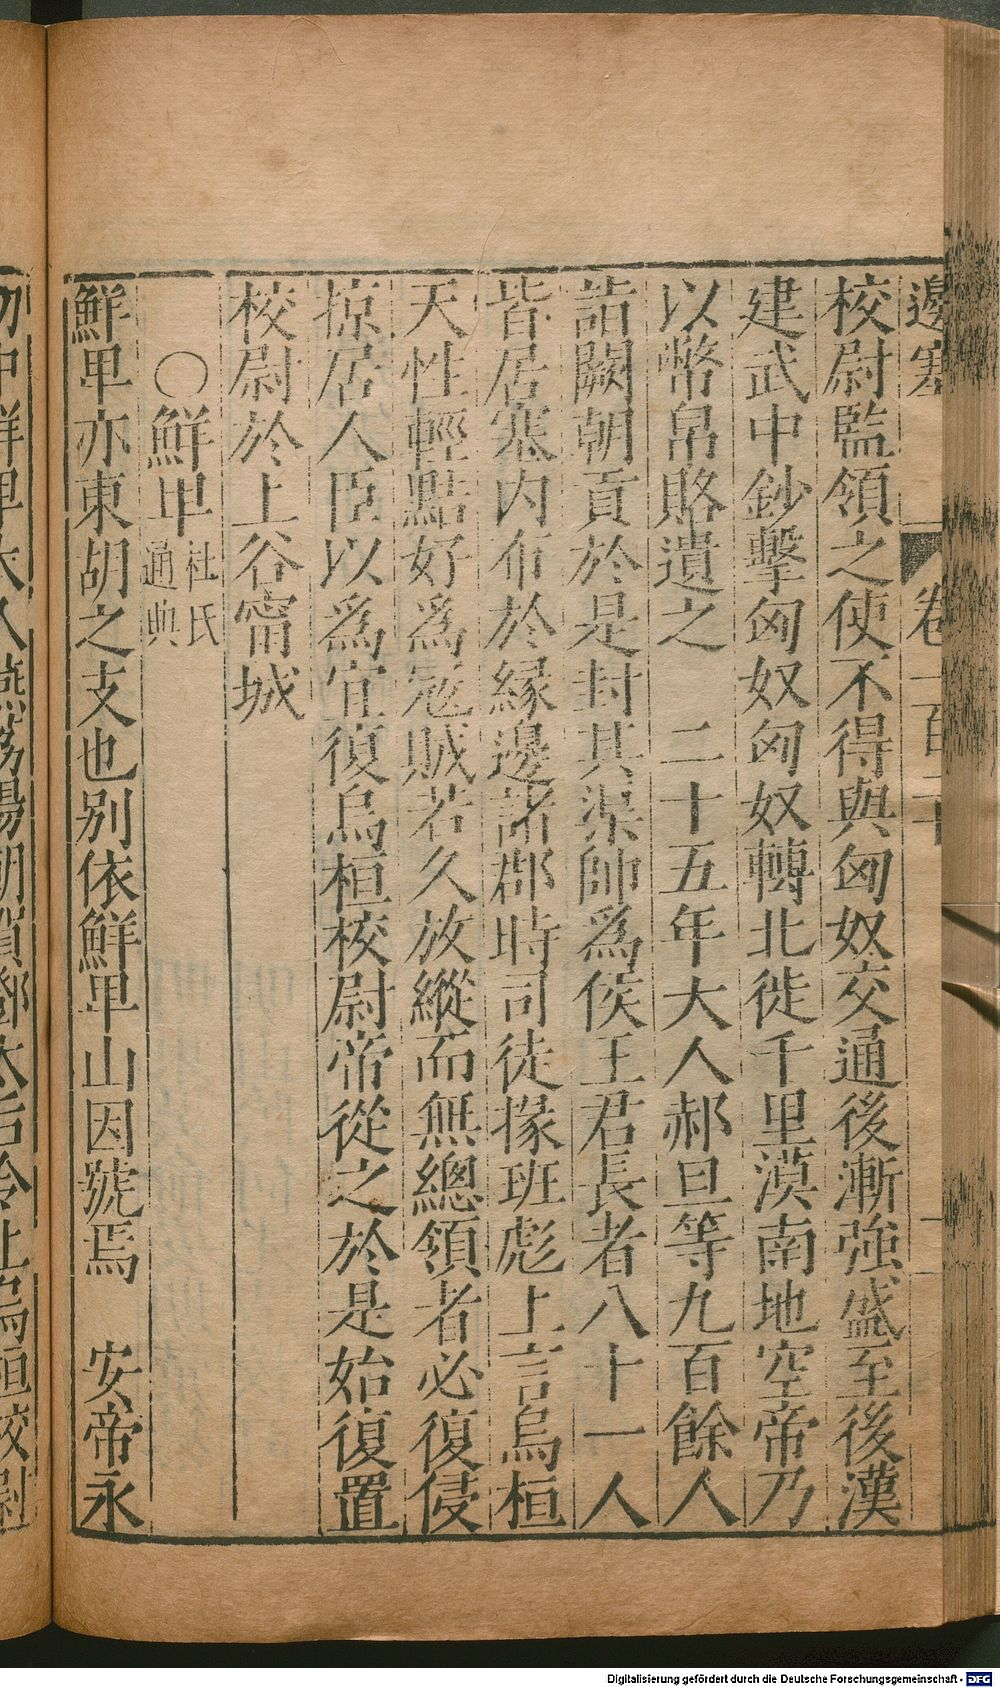 邊塞 卷一百二十 十一
校尉監領之使不得與匈奴交通後漸強盛至後漢
建武中鈔擊匈奴匈奴轉北徙千里漠南地空帝乃
以幣帛賂遺之 二十五年大人郝旦等九百餘人
詣闕朝貢於是封其渠帥為侯王君長者八十一人
皆居塞內布於緣邊諸郡時司徒掾班彪上言烏桓
天性輕黠好為寇賊若久放縱而無總領者必復侵
掠居人臣以為宜復烏桓校尉帝從之於是始復置
校尉於上谷甯城
○鮮卑 杜氏通典
鮮卑亦東胡之支也別依鮮卑山因號焉 安帝永
初中鮮卑大人燕荔陽朝賀鄧太后令止烏桓校尉
Digitalisierung gefördert durch die Deutsche Forschungsgemeinschaft - DFG